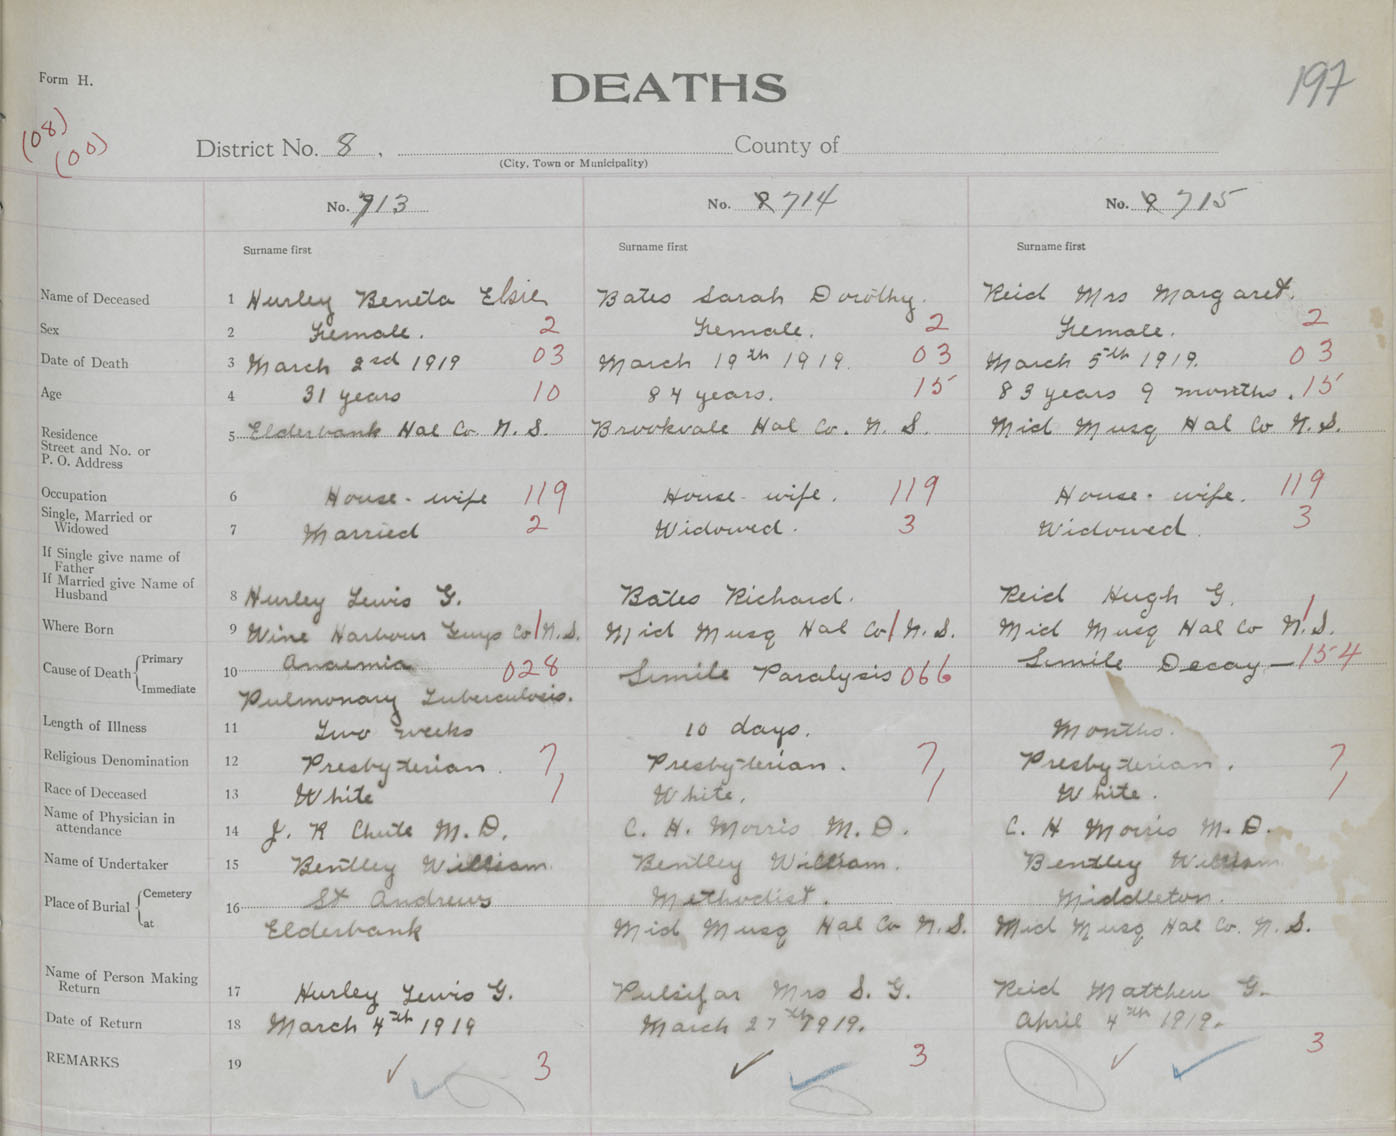 Form H.
DEATHS
197
(08)
(00)
District No. 8, (City, Town or Municipality) County of
No. 713
No. 9 714
No. 9 715
Surname first
Surname first
Surname first
Name of Deceased 1 Hurley Beneta Elsie Bates Sarah Dorothy. Reid Mrs Margaret.
Sex 2 Female. 2 Female. 2 Female. 2
Date of Death 3 March 2nd 1919 03 March 19th 1919. 03 March 5th 1919. 03
Age 4 31 years 10 84 years. 15 83 years 9 months. 15
Residence Street and No. or P. O. Address 5 Elderbank Hal Co N. S. Brookvale Hal Co. N. S. Mid Musq Hal Co N. S.
Occupation 6 House-wife 119 House-wife. 119 House-wife. 119
Single, Married or Widowed 7 Married 2 Widowed. 3 Widowed. 3
If Single give name of Father
If Married give Name of Husband 8 Hurley Lewis G. Bates Richard. Reid Hugh G.
Where Born 9 Wine Harbour Guys Co 1 N. S. Mid Musq Hal Co 1 N. S. Mid Musq Hal Co 1 N. S.
Cause of Death Primary 10 Anaemia 028 Senile Paralysis 066 Senile Decay — 154
Immediate Pulmonary Tuberculosis.
Length of Illness 11 Two weeks 10 days. Months.
Religious Denomination 12 Presbyterian. 7 Presbyterian. 7 Presbyterian. 7
Race of Deceased 13 White 1 White. 1 White. 1
Name of Physician in attendance 14 J. R Chute M. D. C. H. Morris M. D. C. H Morris M. D.
Name of Undertaker 15 Bentley William. Bentley William. Bentley William
Place of Burial Cemetery 16 St Andrews Methodist. Middleton.
at Elderbank Mid Musq Hal Co N. S. Mid Musq Hal Co. N. S.
Name of Person Making Return 17 Hurley Lewis G. Pulsifar Mrs S. G. Reid Matthew G.
Date of Return 18 March 4th 1919 March 27th 1919. April 4th 1919.
REMARKS 19 3 3 3